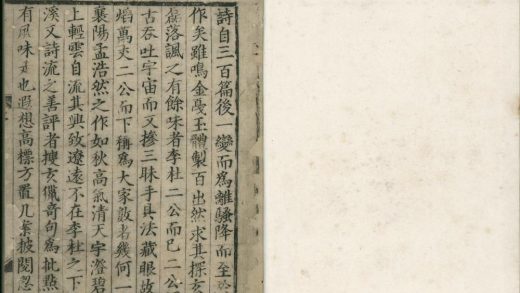 詩自三百篇後一變而爲離騷降而至於
作矣雖鳴金戞玉體製百出然求其探玄
落諷之有餘味者李杜二公而已二公
古吞吐宇宙而又摻三昧手具法藏眼故
焰萬丈二公而下稱爲大家數者幾何一
襄陽孟浩然之作如秋高氣清天宇澄碧
上輕雲自流其興致遼遠不在李杜之下
溪又詩流之善評者摟玄獵奇句爲批點
有風味也遐想高標方置几案披閱忽